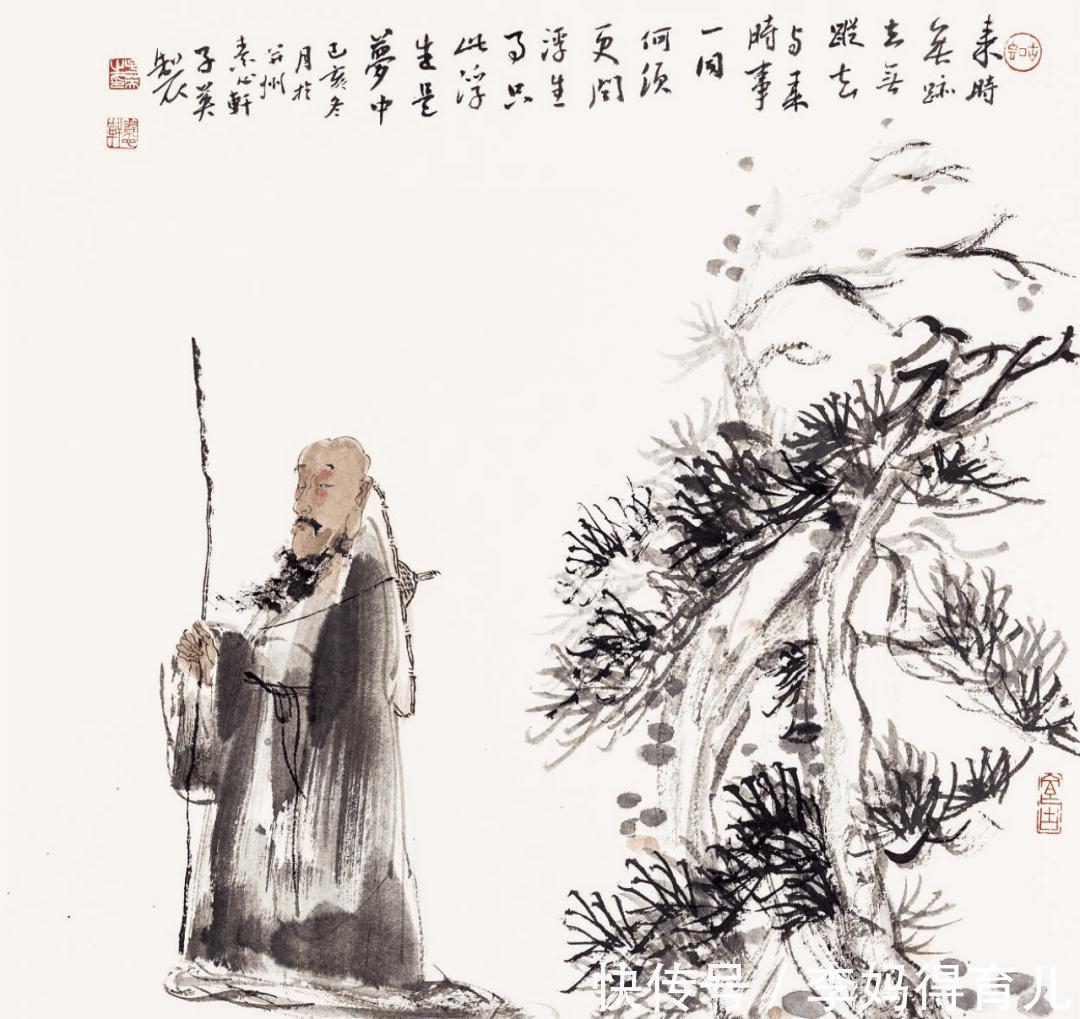 来時
無跡
去無
蹤去
与来
時事
一同
何須
更問
浮生
事只
此浮
生是
夢中
己亥冬
月於
并州
素心軒
子英
製
快传号 / 李妈得育儿